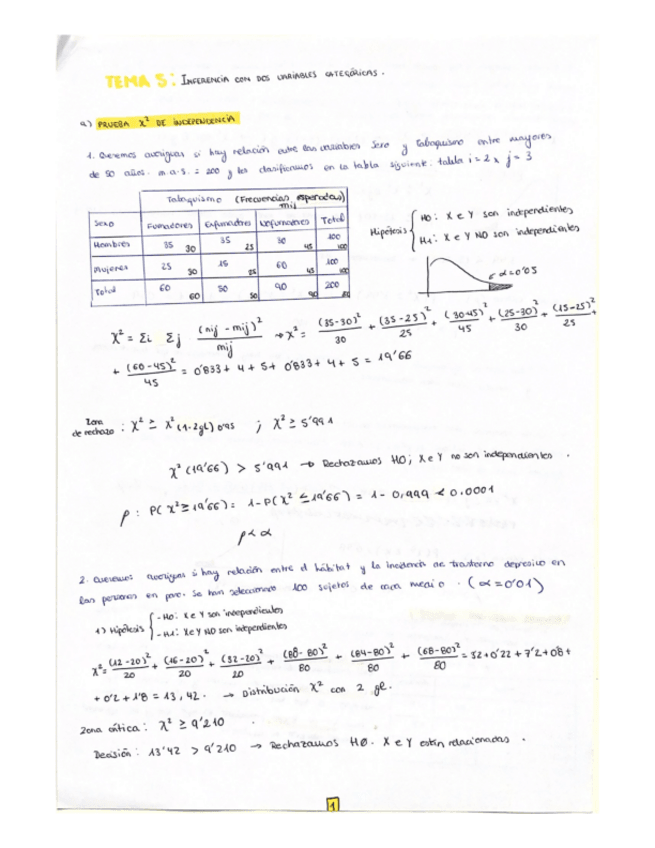 TEMA 5: INFERENCIA CON DOS VARIABLES CATEGÓRICAS.
a) PRUEBA χ² DE INDEPENDENCIA
1. Queremos averiguar si hay relación entre las variables Sexo y Tabaquismo entre mayores
de 50 años. m.a.s. = 200 y los clasificamos en la tabla siguiente: tabla i = 2 x j = 3
Tabaquismo (Frecuencias esperadas) mij
Sexo Fumadores Exfumadores Nofumadores Total
Hombres 35 30 35 25 30 45 100 100
Mujeres 25 30 15 25 60 45 100 100
Total 60 60 50 50 90 90 200
Hipótesis { H0: X e Y son independientes
H1: X e Y NO son independientes
α=0'05
χ² = Σi Σj (nij - mij)² / mij → χ² = (35-30)² / 30 + (35-25)² / 25 + (30-45)² / 45 + (25-30)² / 30 + (15-25)² / 25 +
+ (60-45)² / 45 = 0'833 + 4 + 5 + 0'833 + 4 + 5 = 19'66
Zona de rechazo : χ² ≥ χ² (1-2gl) 0'95 ; χ² ≥ 5'991
χ² (19'66) > 5'991 → Rechazamos H0; X e Y no son independientes .
p : P(χ² ≥ 19'66) = 1-P(χ² ≤ 19'66) = 1 - 0,999 < 0.0001
p < α
2. Queremos averiguar si hay relación entre el hábitat y la incidencia de trastorno depresivo en
las personas en paro. Se han seleccionado 100 sujetos de cada medio . (α = 0'01)
1) Hipótesis { - H0: X e Y son independientes
- H1: X e Y NO son independientes
χ² = (12-20)² / 20 + (16-20)² / 20 + (32-20)² / 20 + (88-80)² / 80 + (84-80)² / 80 + (68-80)² / 80 = 32+0'22 + 7'2+08+
+ 0'2 + 1'8 = 13,42 . → Distribución χ² con 2 gl.
Zona crítica : χ² ≥ 9'210 .
Decisión : 13'42 > 9'210 → Rechazamos HØ. X e Y están relacionadas .
1